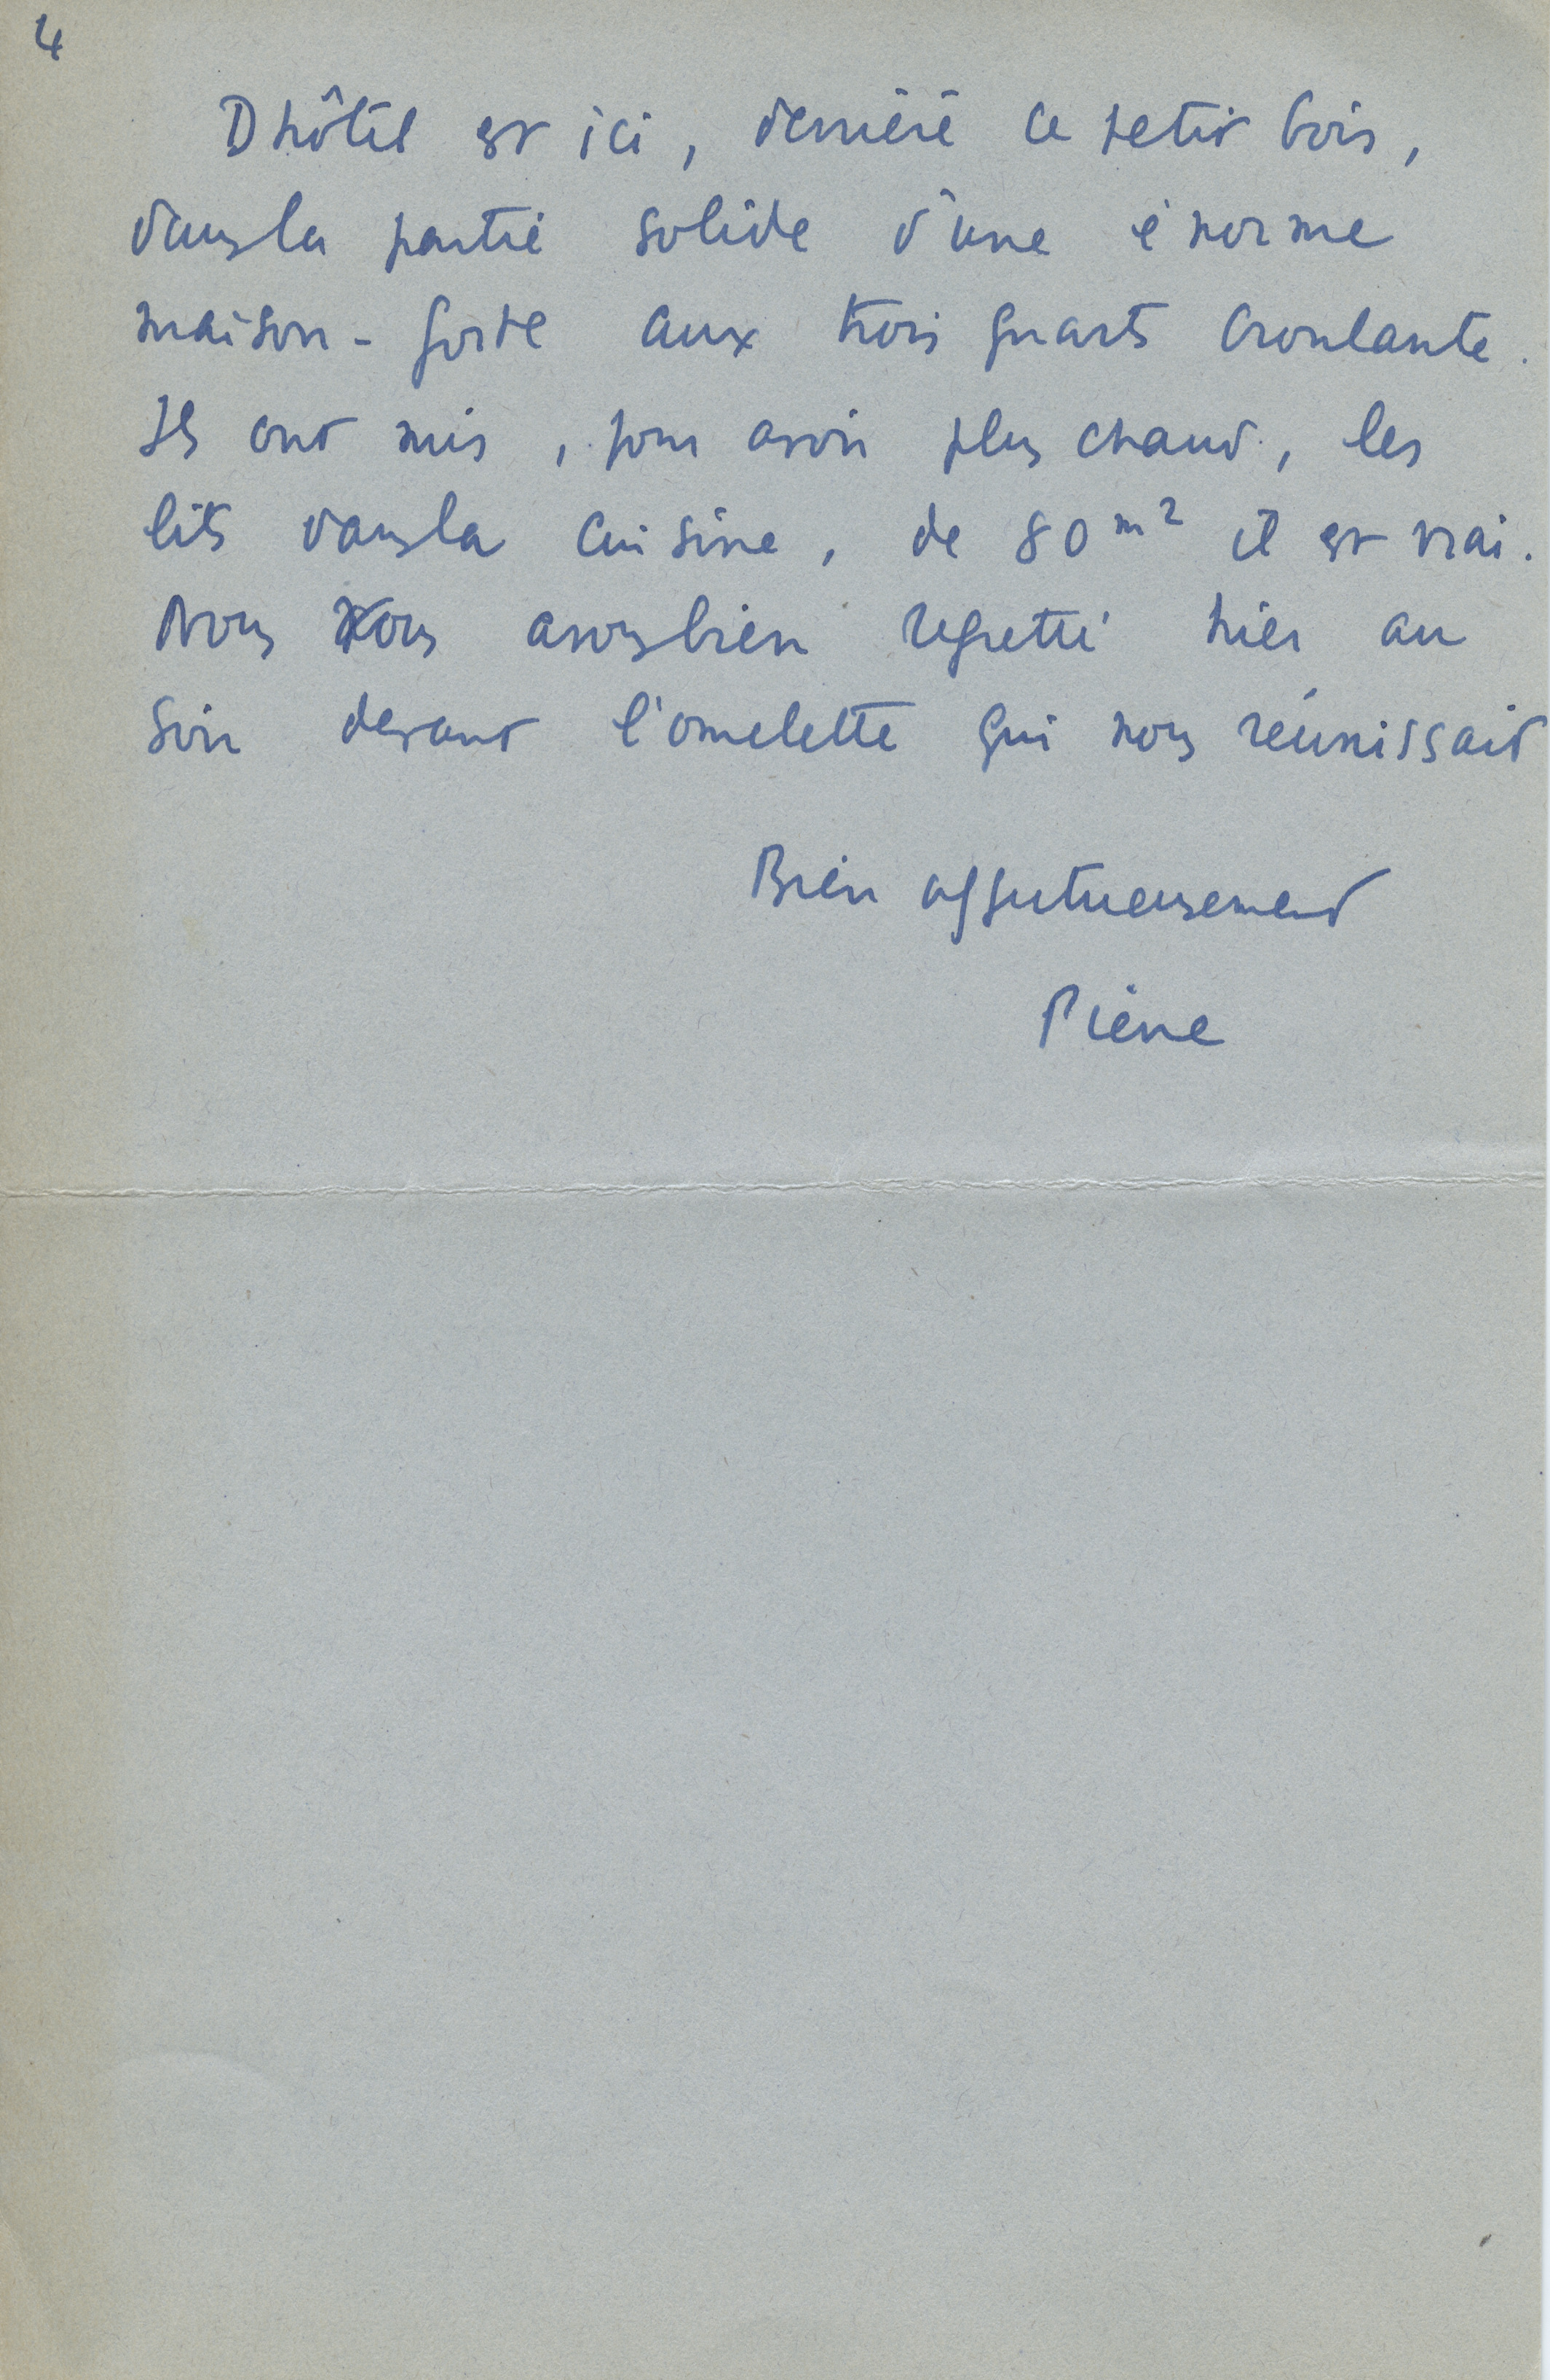 4
Dhôtel est ici, derrière ce petit bois,
dans la partie solide d'une énorme
maison-forte aux trois quarts croulante.
Ils ont mis, pour avoir plus chaud, les
lits dans la cuisine, de 80 m² il est vrai.
Nous vous avons bien regretté hier au
soir devant l'omelette qui nous réunissait
Bien affectueusement
Pierre